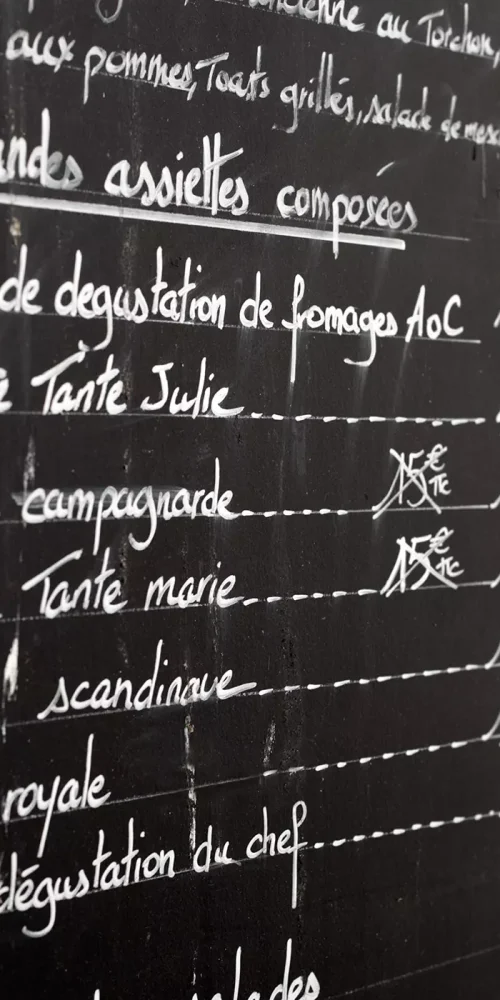 au Torchon,
aux pommes, Toasts grillés, salade de
assiettes composées
de degustation de fromages AoC
Tante Julie
campagnarde 15€ TTC
Tante marie 15€ TTC
scandinave
royale
dégustation du chef
salades